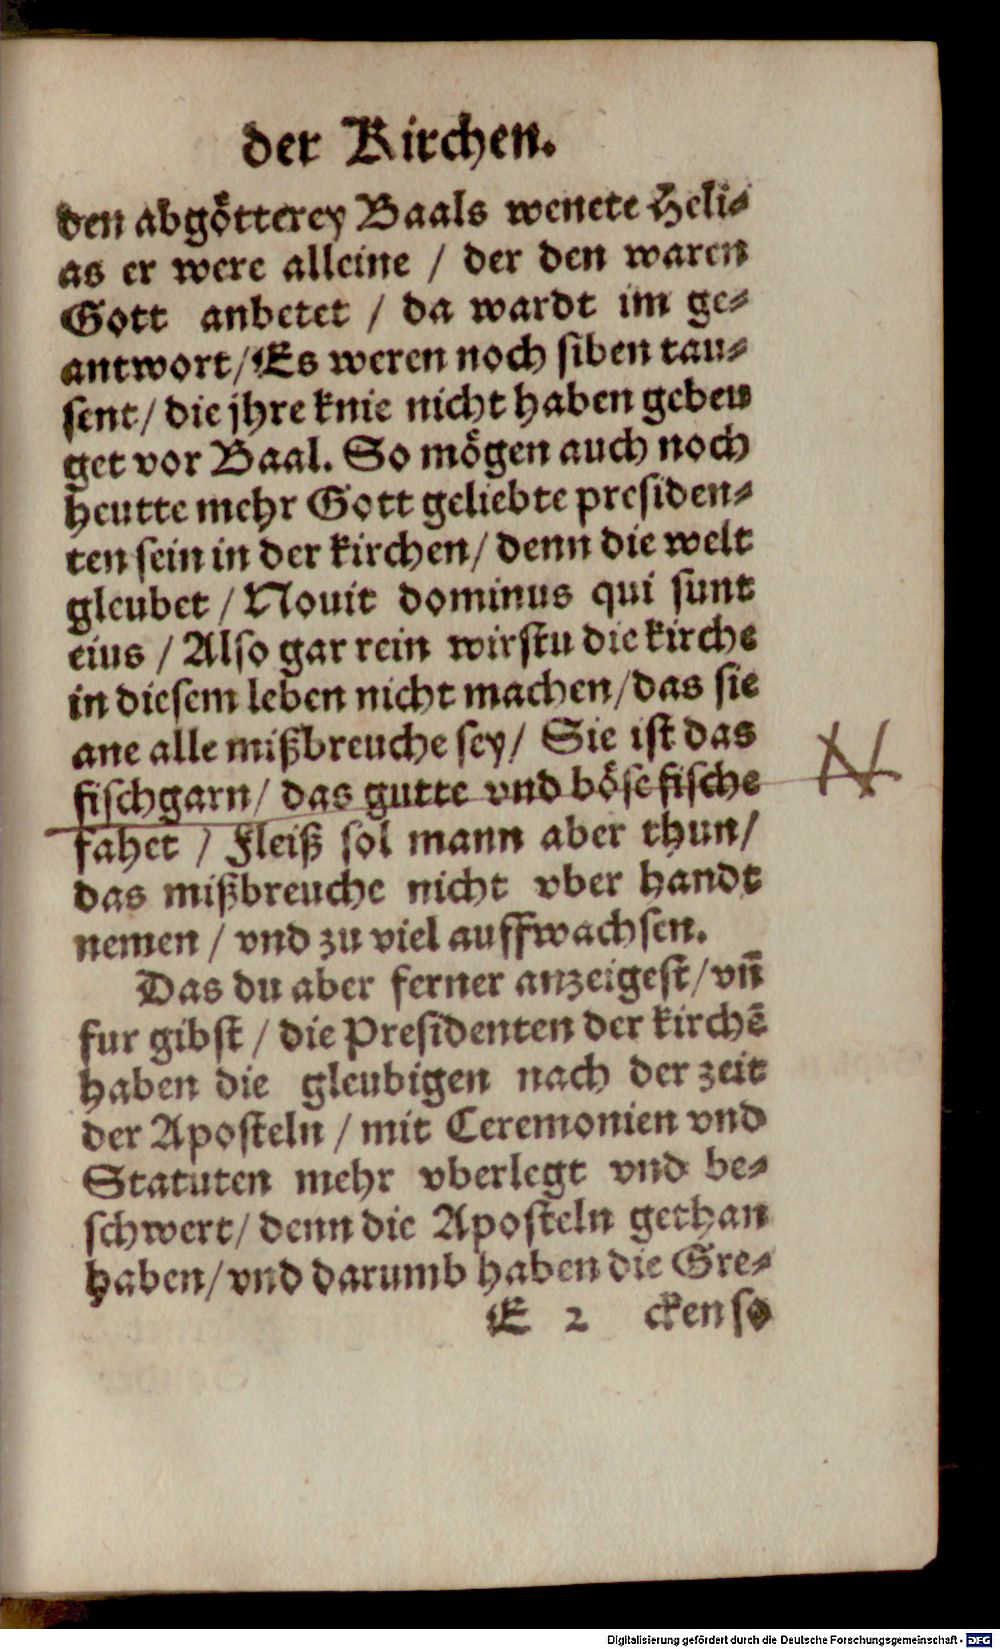 der Kirchen.
den abgötterey Baals wenete Heli⸗
as er were alleine / der den waren
Gott anbetet / da wardt im ge⸗
antwort / Es weren noch siben tau⸗
sent / die jhre knie nicht haben gebeu
get vor Baal. So mögen auch noch
heutte mehr Gott geliebte presiden⸗
ten sein in der kirchen / denn die welt
gleubet / Nouit dominus qui sunt
eius / Also gar rein wirstu die kirche
in diesem leben nicht machen / das sie
ane alle mißbreuche sey / Sie ist das
fischgarn / das gutte vnd böse fische
fahet / Fleiß sol mann aber thun /
das mißbreuche nicht vber handt
nemen / vnd zu viel auffwachsen.
Das du aber ferner anzeigest / vn̄
fur gibst / die Presidenten der kirchē
haben die gleubigen nach der zeit
der Aposteln / mit Ceremonien vnd
Statuten mehr vberlegt vnd be⸗
schwert / denn die Aposteln gethan
haben / vnd darumb haben die Gre⸗
E 2 cken so
Digitalisierung gefördert durch die Deutsche Forschungsgemeinschaft - DFG